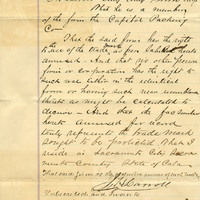 that he is a member
of the firm the Capitol Packing
Co
That the said firm has the right
to use of the trade, as per label hereto
annexed. And that no other person
firm or corporation has the right to
such use either in the identical
form or having such near resemblance
thereto as might be calculated to
deceive. And that the fac similes
hereto annexed for record
truly represents the trade mark
sought to be protected. That I
reside in Sacramento City Sacra
mento County State of Cala
Carroll
Subscribed and sworn to